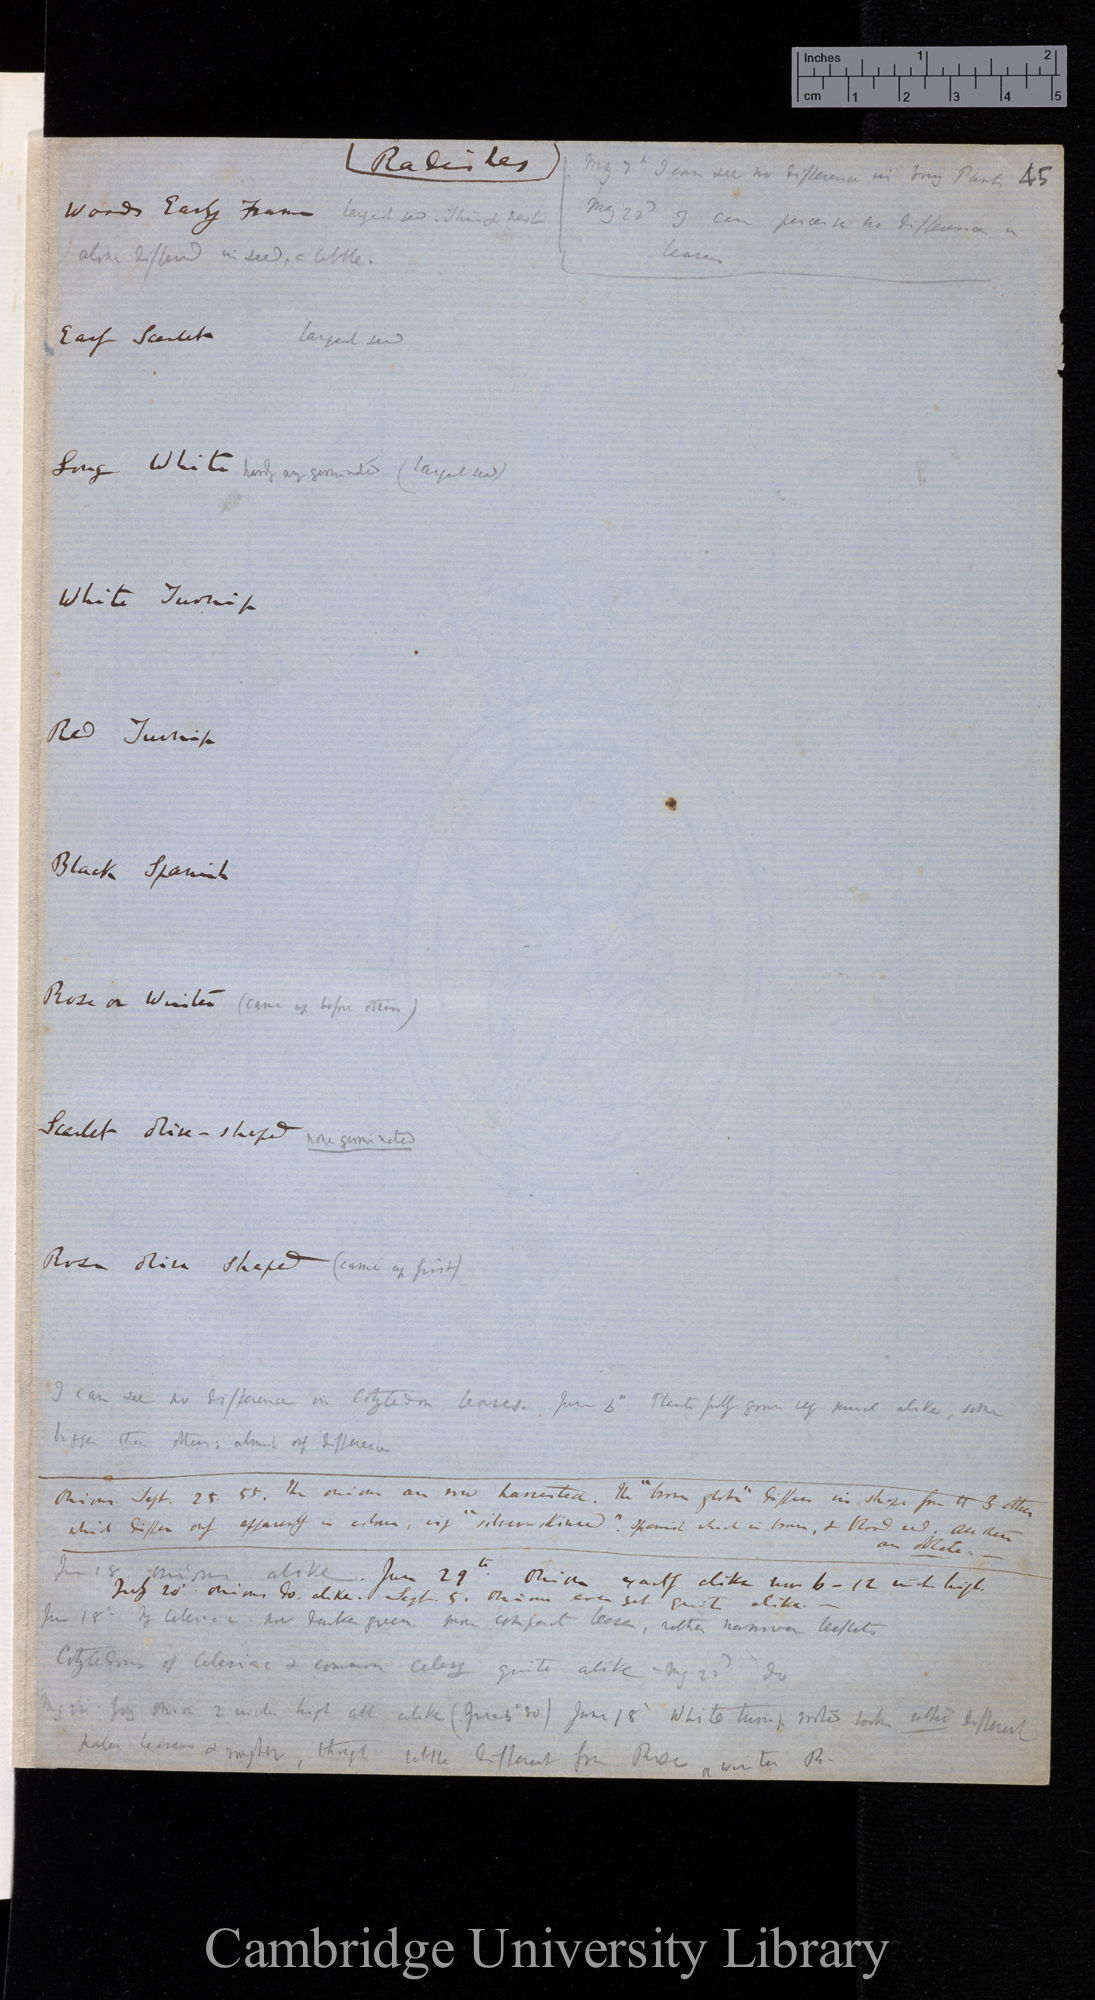 Inches 1 2
cm 1 2 3 4 5
(Radishes)
45
May 7th I can see no difference in young Plants
May 22d I can perceive no difference in
leaves
Woods Early Frame largest seed. This & next
alone differed in seed, a little.
Early Scarlet largest seed
Long White hardly any germinated (largest seed)
White Turnip
Red Turnip
Black Spanish
Rose or Winter (came up before others)
Scarlet olive-shaped none germinated
Rose olive shaped (came up first)
I can see no difference in Cotyledon leaves. June 5th Plants fully grown very much alike, some
bigger than others; almost only difference
Onions. Sept. 25. 55. The onions are now harvested. The "brown globe" differs in shape from the 3 others
which differ only apparently in colour, viz "silver-skinned". Spanish which is brown, & blood red. all these
are oblate. —
June 18 onions alike. June 29th Onions exactly alike now 6-12 inch high.
July 20th Onions do. alike. Sept. 5. Onions even yet quite alike. —
June 18th My Celeriac now darker green, more compact leaves, rather narrower leaflets
Cotyledons of Celeriac & common Celery quite alike - May 22d do
May 22d Young Onion 2 inches high all alike (June 5th do) June 18th White turnip rooted looks rather different
paler leaves & rougher, though little different from Rose or winter R.
Cambridge University Library